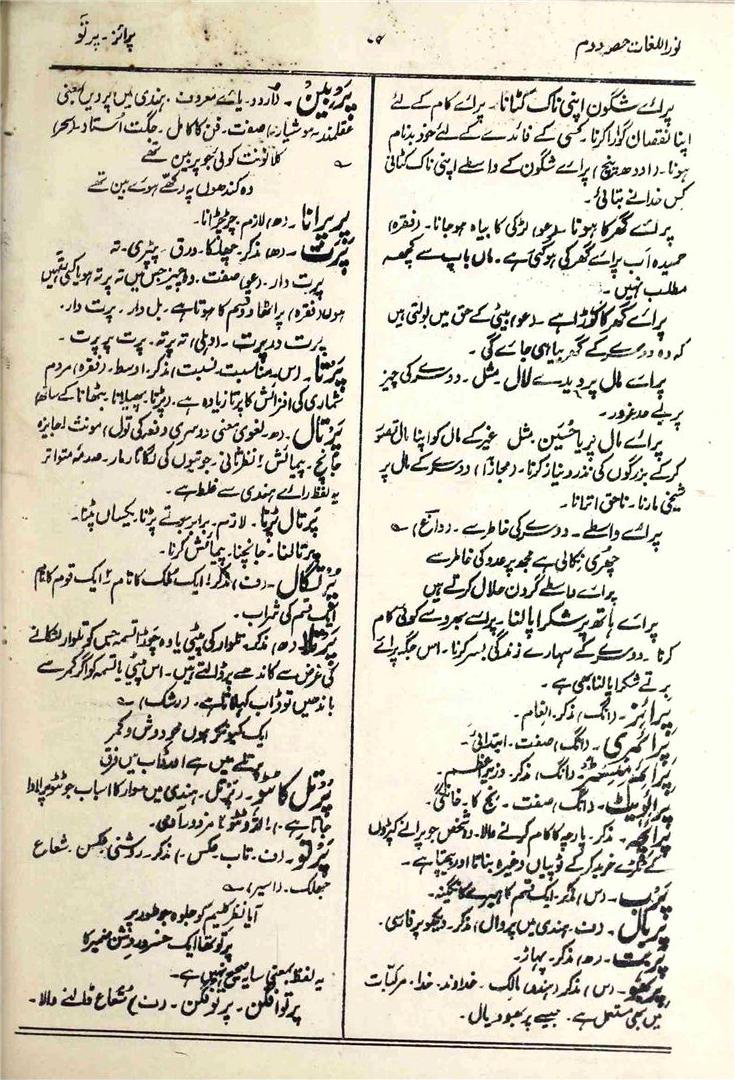 نوراللغات حصہ دوم
۷۶
پرائز - پرتَو
پرائے شگون اپنی ناک کٹانا - پرائے کام کے لئے
اپنا نقصان گوارا کرنا - کسی کے فائدے کے لئے خود بدنام
ہونا - (اودھ پنچ) پرائے شگون کے واسطے اپنی ناک کٹانی
کس خدا نے بتائی -
پرائے گھر کا ہونا - (عو) لڑکی کا بیاہ ہوجانا - (فقرہ)
حمیدہ اَب پرائے گھر کی ہوگئی ہے - ماں باپ سے کچھ
مطلب نہیں -
پرائے گھر کا کوڑا ہے - (عو) بیٹی کے حق میں بولتی ہیں
کہ وہ دوسرے کے گھر بیاہی جائے گی -
پرائے مال پر دیدے لال - مثل - دوسرے کی چیز
پر بے حد غرور -
پرائے مال پر یا حُسَین - مثل - غیر کے مال کو اپنا مال تصور
کرکے بزرگوں کی نذر و نیاز کرنا - (مجازًا) دوسرے کے مال پر
شیخی مارنا - ناحق اترانا -
پرائے واسطے - دوسرے کی خاطر سے - (داغ) ؎
چھری نکالی ہے مجھ پر عدو کی خاطر سے
پرائے واسطے گردن حلال کرتے ہیں
پرائے ہاتھ پر شکرا پالنا - پرائے بھروسے کوئی کام
کرنا - دوسرے کے سہارے زندگی بسر کرنا - اس جگہ پرائے
برتے شکرا پالنا بھی ہے -
پرائز - (انگ) مذکر - انعام -
پرائمری - (انگ) صفت - ابتدائی -
پرائم منسٹر - (انگ) مذکر - وزیر اعظم -
پرائیوٹ - (انگ) صفت - نج کا - خانگی -
پراچہ - مذکر - پارچہ کا کام کرنے والا - وہ شخص جو پرانے کپڑوں
کے ٹکڑے خرید کرکے ٹوپیاں وغیرہ بناتا اور بیچتا ہے -
پرب - (س) مذکر - ایک قسم کا ہیرے کا نگینہ -
پربال - (ف - ہندی میں پروال) مذکر - دیکھو پر فارسی -
پربت - (ھ) مذکر - پہاڑ -
پربھو - (س) مذکر (ہندو) مالک - خداوند - خدا - مرکبات
میں بھی مستعمل ہے - جیسے پربھو دیال -
پَرْبین - (اردو - یائے معروف - ہندی میں پروین) معنی
عقلمند - ہوشیار) صفت - فن کا کامل - جگت اُستاد - (بحر)
؎ کلانوت کوئی جو پربین تھے
وہ کندھوں پہ رکھے ہوئے بین تھے
پرپرانا - (ھ) لازم - چرچڑانا -
پَرَت - (ھ) مذکر - چھلکا - ورق - پپڑی - تہ
پرت دار - (عو) صفت - وہ چیز جس میں تہ پر تہ ہو یا کئی تہیں
ہوں (فقرہ) پراٹھا دو قسم کا ہوتا ہے - بل دار - پرت دار -
پرت در پرت - (دہلی) تہ پر تہ - پرت پر پرت -
پَرتا - (س - مناسبت، نسبت) مذکر - اوسط - (فقرہ) مردم
شماری کی افزائش کا پرتا زیادہ ہے - (پڑنا، پھیلانا، بٹھانا کے ساتھ)
پَرتال - (ھ - لغوی معنی دوسری دفعہ کی تول) مونث ۱ جائزہ
جانچ - پیمائش ۲ نظر ثانی - جوتیوں کی لگاتار مار - صدمۂ متواتر
یہ لفظ رائے ہندی سے غلط ہے -
پَرتال پڑنا - لازم - برابر جوتے پڑنا - یکساں پٹنا -
پرتالنا - جانچنا - پیمائش کرنا -
پُرتگال - (ف) مذکر ۱ ایک ملک کا نام ۲ ایک قوم کا نام
ایک قسم کی شراب -
پَرتلا - (ھ) مذکر - تلوار کی پیٹی یا وہ چوڑا تسمہ جس کو تلوار لٹکانے
کی غرض سے کاندھے پر ڈالتے ہیں - اس پیٹی یا تسمہ کو اگر کمر سے
باندھیں تو ڈاب کہلاتا ہے - (رشک) ؎
ایک کیونکر ہوں مرد دوش و کمر
پرتلے میں ہے اور ڈاب میں فرق
پَرتل کا ٹٹو - ہندی میں سوار کا اسباب جو ٹٹو پر لادا
جاتا ہے) لدو ٹٹو
پَرتَو - (ف - تاب، عکس) مذکر - روشنی، عکس - شعاع
جھلک - (اسیر) ؎
آیا نظر کلیم کو جلوہ جو طور پر
پرتو تھا ایک خسرو روشن ضمیر کا
یہ لفظ بمعنی سایہ صحیح نہیں ہے -
پرتو افگن - پرتو فگن - (ف) شعاع ڈالنے والا -